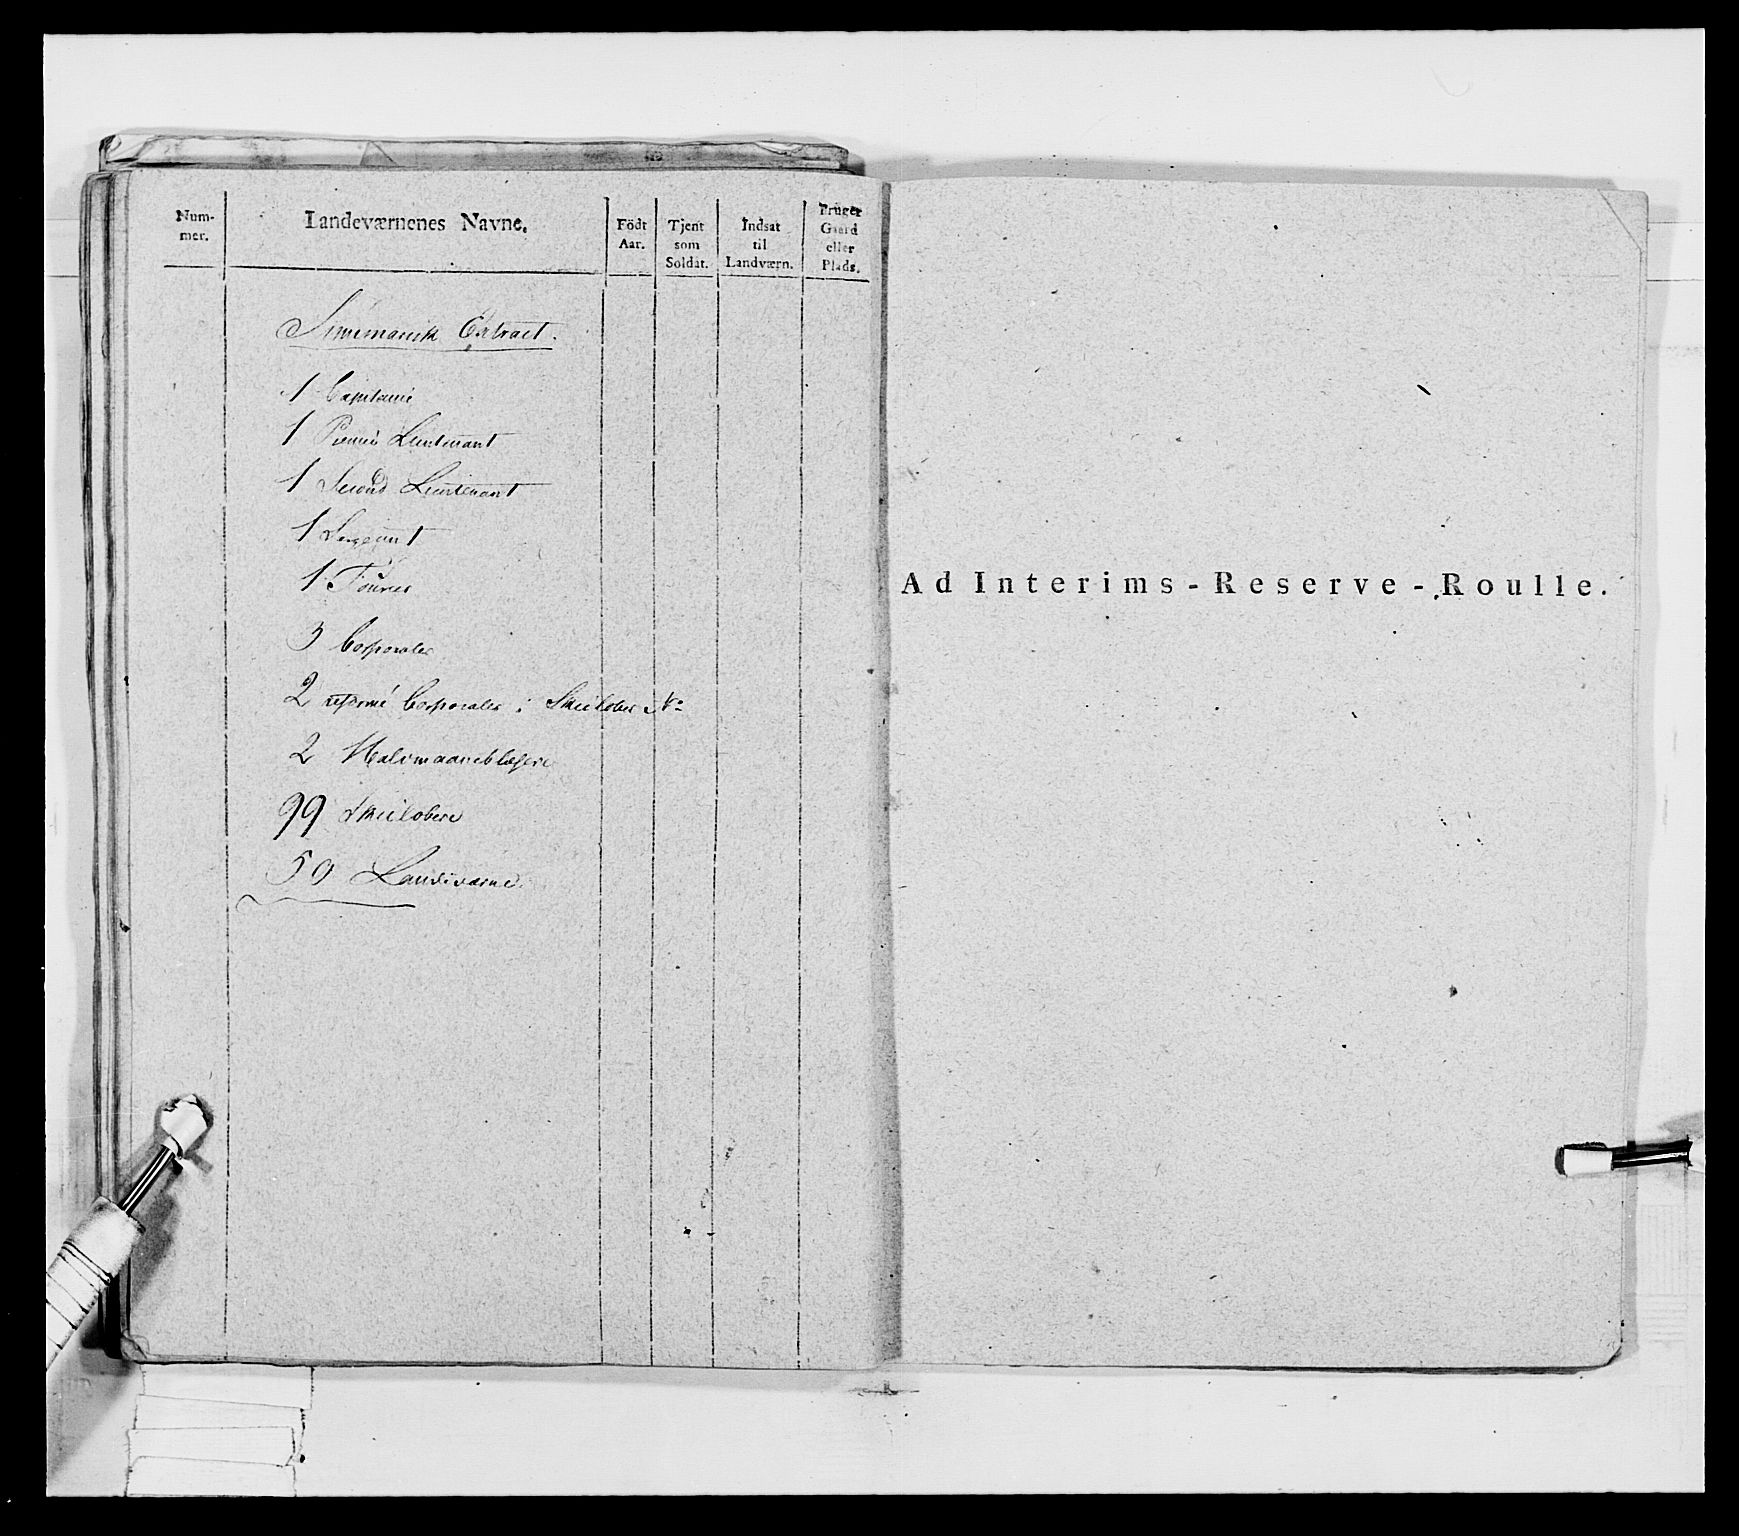 Num-
mer.
Landeværnenes Navne.
Födt
Aar.
Tjent
som
Soldat.
Indsat
til
Landværn.
Bruger
Gaard
eller
Plads.
Summarisk Extract.
1 Capitaine
1 Premier Lieutenant
1 Second Lieutenant
1 Sergeant
1 Fourer
3 Corporaler
2 reformé Corporaler i Skieløber No
2 Halvmaaneblæsere
99 Skieløbere
50 Landeværne
Ad Interims-Reserve-Roulle.